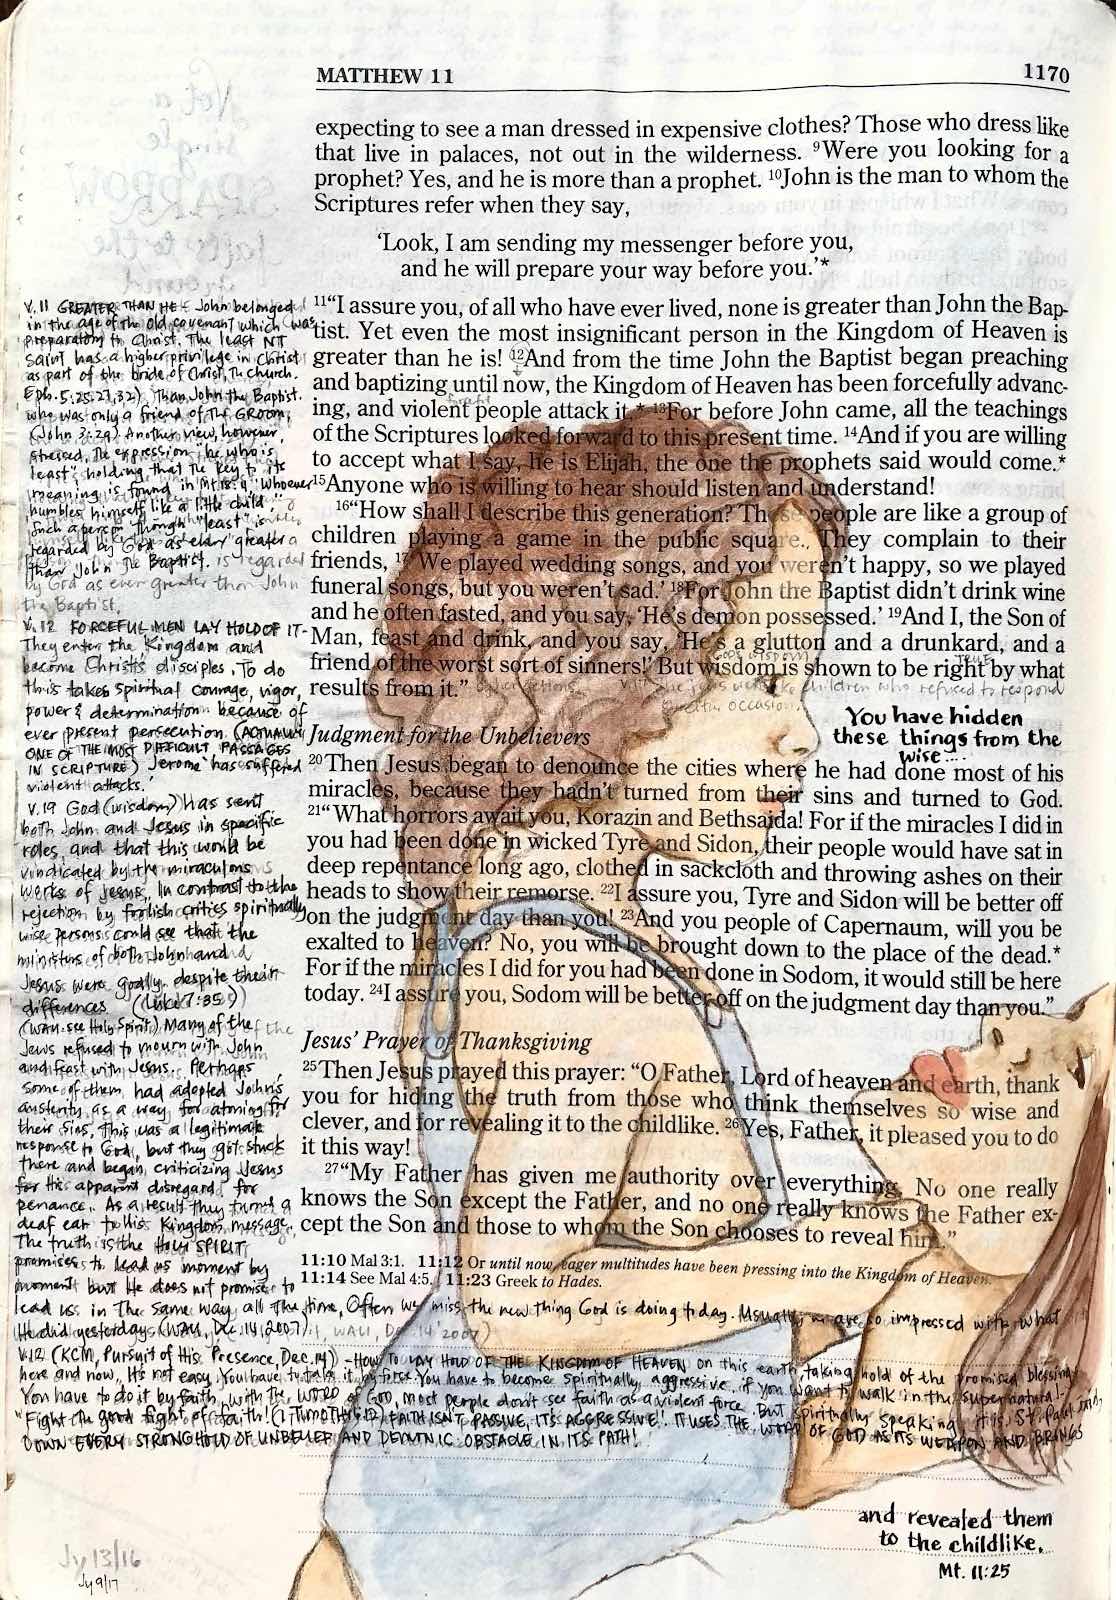 MATTHEW 11
1170
expecting to see a man dressed in expensive clothes? Those who dress like
that live in palaces, not out in the wilderness. 9Were you looking for a
prophet? Yes, and he is more than a prophet. 10John is the man to whom the
Scriptures refer when they say,
'Look, I am sending my messenger before you,
and he will prepare your way before you.'*
11"I assure you, of all who have ever lived, none is greater than John the Bap-
tist. Yet even the most insignificant person in the Kingdom of Heaven is
greater than he is! 12And from the time John the Baptist began preaching
and baptizing until now, the Kingdom of Heaven has been forcefully advanc-
ing, and violent people attack it.* 13For before John came, all the teachings
of the Scriptures looked forward to this present time. 14And if you are willing
to accept what I say, he is Elijah, the one the prophets said would come.*
15Anyone who is willing to hear should listen and understand!
16"How shall I describe this generation? These people are like a group of
children playing a game in the public square. They complain to their
friends, 17'We played wedding songs, and you weren't happy, so we played
funeral songs, but you weren't sad.' 18For John the Baptist didn't drink wine
and he often fasted, and you say, 'He's demon possessed.' 19And I, the Son of
Man, feast and drink, and you say, 'He's a glutton and a drunkard, and a
friend of the worst sort of sinners!' But wisdom is shown to be right by what
results from it."
Judgment for the Unbelievers
20Then Jesus began to denounce the cities where he had done most of his
miracles, because they hadn't turned from their sins and turned to God.
21"What horrors await you, Korazin and Bethsaida! For if the miracles I did in
you had been done in wicked Tyre and Sidon, their people would have sat in
deep repentance long ago, clothed in sackcloth and throwing ashes on their
heads to show their remorse. 22I assure you, Tyre and Sidon will be better off
on the judgment day than you! 23And you people of Capernaum, will you be
exalted to heaven? No, you will be brought down to the place of the dead.*
For if the miracles I did for you had been done in Sodom, it would still be here
today. 24I assure you, Sodom will be better off on the judgment day than you."
Jesus' Prayer of Thanksgiving
25Then Jesus prayed this prayer: "O Father, Lord of heaven and earth, thank
you for hiding the truth from those who think themselves so wise and
clever, and for revealing it to the childlike. 26Yes, Father, it pleased you to do
it this way!
27"My Father has given me authority over everything. No one really
knows the Son except the Father, and no one really knows the Father ex-
cept the Son and those to whom the Son chooses to reveal him."
11:10 Mal 3:1. 11:12 Or until now, eager multitudes have been pressing into the Kingdom of Heaven.
11:14 See Mal 4:5. 11:23 Greek to Hades.
You have hidden
these things from the
wise....
and revealed them
to the childlike.
Mt. 11:25
V.11 GREATER THAN HE - John belonged
in the age of the old covenant which was
preparatory to Christ. The least NT
saint has a higher privilege in Christ
as part of the bride of Christ, the church.
Eph. 5:25-27, 32) Than John the Baptist.
who was only a friend of the GROOM,
(John 3:29) Another view, however,
stresses the expression "he who is
least", holding that the key to its
meaning is found in Mt. 18:4 "Whoever
humbles himself like a little child."
Such a person, though "least" is
regarded by God as even greater
than John the Baptist.
V.12 FORCEFUL MEN LAY HOLD OF IT-
They enter the Kingdom and
become Christ's disciples. To do
this takes spiritual courage, vigor,
power & determination because of
ever present persecution. (ACTUALLY
ONE OF THE MOST DIFFICULT PASSAGES
IN SCRIPTURE) Jerome has suffered
violent attacks.
V.19 God (wisdom) has sent
both John and Jesus in specific
roles, and that this would be
vindicated by the miraculous
works of Jesus. In contrast to the
rejection by foolish critics spiritually
wise persons could see that the
ministers of both John and
Jesus were godly despite their
differences (Luke 7:35)
(WAU-see Holy Spirit) Many of the
Jews refused to mourn with John
and feast with Jesus. Perhaps
some of them had adopted John's
austerity as a way for atoning for
their sins. This was a legitimate
response to God, but they got stuck
there and began criticizing Jesus
for His apparent disregard for
penance. As a result they turned a
deaf ear to his Kingdom message.
The truth is the HOLY SPIRIT
promises to lead us moment by
moment but He does not promise to
lead us in the same way all the time. Often we miss the new thing God is doing today. Usually we are so impressed with what
He did yesterday (WAU, Dec. 14, 2007)
V.12 (KCM, Pursuit of His Presence, Dec. 14) - HOW TO LAY HOLD OF THE KINGDOM OF HEAVEN on this earth, taking hold of the promised blessings
here and now. It's not easy. You have to take it by force. You have to become spiritually aggressive if you want to walk in the supernatural.
You have to do it by faith, with the WORD of God, most people don't see faith as a violent force. But spiritually speaking it is. St. Paul said,
"Fight the good fight of faith! (1 Timothy 6:12) FAITH ISN'T PASSIVE, IT'S AGGRESSIVE! IT USES THE WORD OF GOD AS ITS WEAPON AND BRINGS
DOWN EVERY STRONGHOLD OF UNBELIEF AND DEMONIC OBSTACLE IN ITS PATH!
Jy 13/16
Jy 9/17